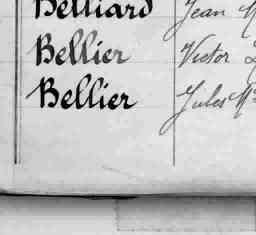 Belliard Jean
Bellier Victor
Bellier Jules